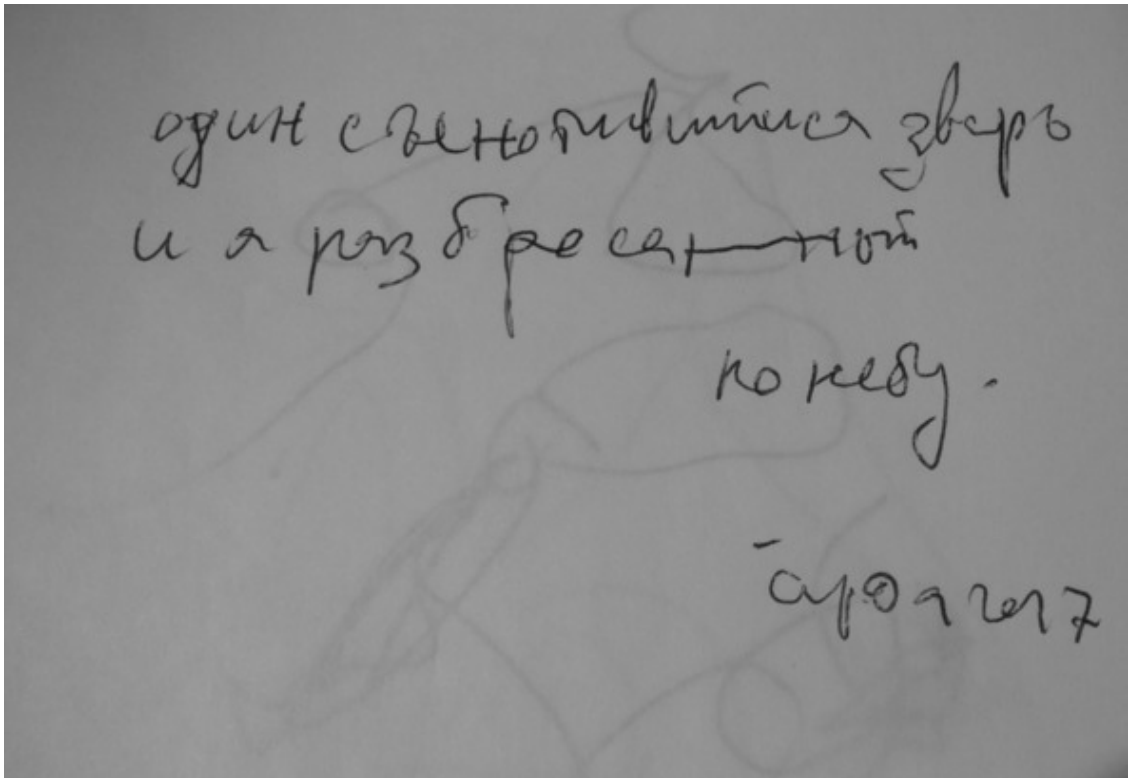 один съенотившийся зверь
и я разбросанный
по небу.
2017